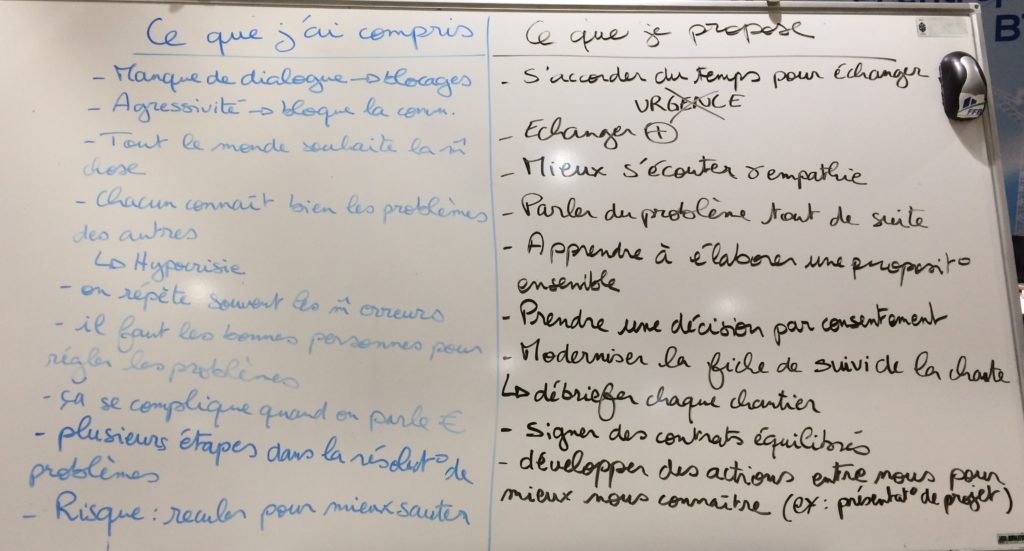 Ce que j'ai compris
- Manque de dialogue → blocages
- Agressivité → bloque la comm.
- Tout le monde souhaite la m̂
chose
- Chacun connaît bien les problèmes
des autres
↳ Hypocrisie
- on répète souvent les m̂ erreurs
- il faut les bonnes personnes pour
régler les problèmes
- ça se complique quand on parle €
- plusieurs étapes dans la résolut° de
problèmes
- Risque : reculer pour mieux sauter
Ce que je propose
- S'accorder du temps pour échanger
URGENCE
- Echanger ⊕
- Mieux s'écouter & empathie
- Parler du problème tout de suite
- Apprendre à élaborer une proposit°
ensemble
- Prendre une décision par consentement
- Moderniser la fiche de suivi de la charte
↳ débriefer chaque chantier
- Signer des contrats équilibrés
- développer des actions entre nous pour
mieux nous connaître (ex : présentat° de projet)
B
FFB